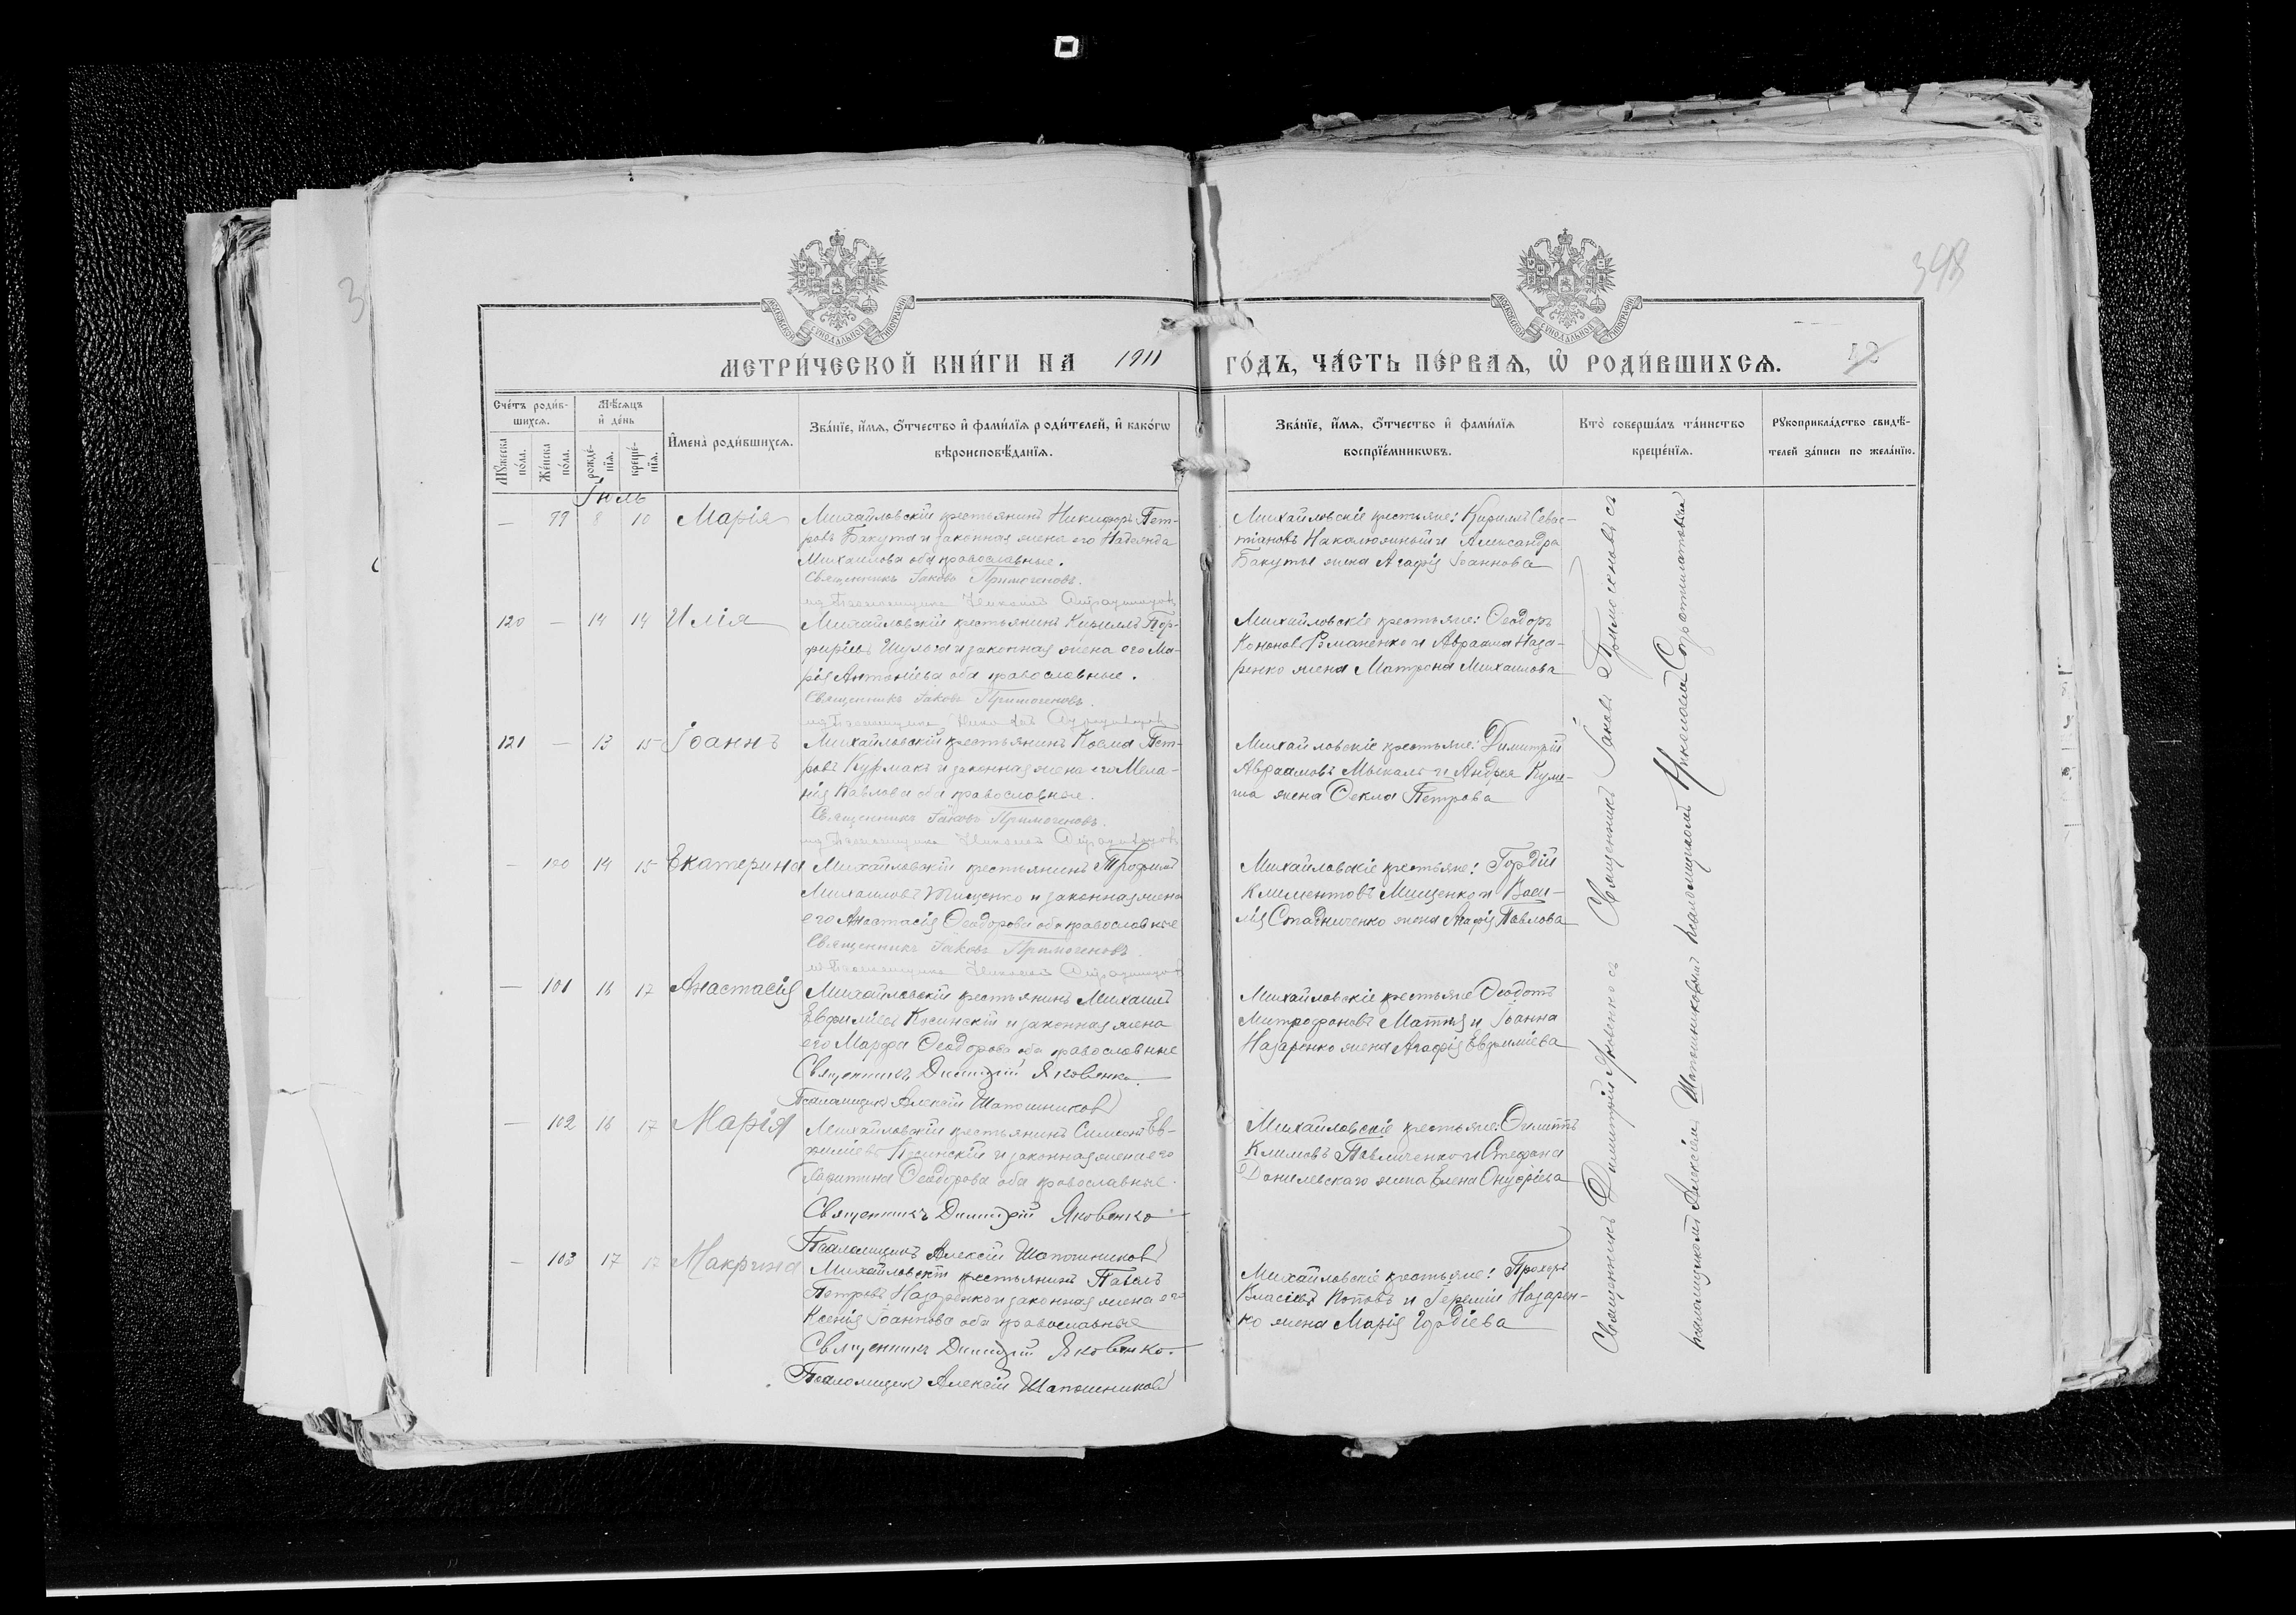 398
МЕТРИ́ЧЕСКОЙ КНИ́ГИ НА 1911 ГО́ДЪ, ЧА́СТЬ ПЕ́РВАѦ, Ѡ҆ РОДИ́ВШИХСѦ.
Сче́тъ роди́в-
шихсѧ.
Мꙋ́жеска по́ла.
Же́нска по́ла.
Мѣ́сѧцъ
и҆ де́нь
рожде́-
нїѧ.
креще́-
нїѧ.
И҆мена̀ роди́вшихсѧ.
Зва́нїе, и҆́мѧ, ѻ҆́тчество и҆ фами́лїѧ роди́телей, и҆ како́гѡ
вѣроисповѣ́данїѧ.
Зва́нїе, и҆́мѧ, ѻ҆́тчество и҆ фами́лїѧ
воспрїе́мникѡвъ.
Кто̀ соверша́лъ та́инство
креще́нїѧ.
Рꙋкоприкла́дство свидѣ́-
телей за́писи по жела́нїю.
Іюль
— 99 8 10 Марія
Михайловскій крестьянинъ Никифоръ Пет-
ровъ Бакута и законная жена его Надежда
Михаилова оба православные.
Священникъ Іаковъ Примогеновъ.
Михайловскіе крестьяне: Кириллъ Севас-
тіановъ Накалюжный и Александра
Бакуты жена Агафія Іоаннова
120 — 14 14 Илія
Михайловскій крестьянинъ Кириллъ Пор-
фиріевъ Шульга и законная жена его Ма-
рія Антоніева оба православные.
Священникъ Іаковъ Примогеновъ.
Михайловскіе крестьяне: Ѳеодоръ
Кононовъ Романенко и Авраама Наза-
ренко жена Матрона Михаилова
121 — 13 15 Іоаннъ
Михайловскій крестьянинъ Косма Пет-
ровъ Курмакъ и законная жена его Мела-
нія Павлова оба православные.
Священникъ Іаковъ Примогеновъ.
Михайловскіе крестьяне: Димитрій
Авраамовъ Мыкалъ и Андрея
жена Ѳекла Петрова
— 100 14 15 Екатерина
Михайловскій крестьянинъ Трофимъ
Михаиловъ Тищенко и законная жена
его Анастасія Ѳеодорова оба православные
Священникъ Іаковъ Примогеновъ.
Михайловскіе крестьяне: Гордій
Климентовъ Мищенко и Васи-
лія Стадниченко жена Агафія Павлова
— 101 16 17 Анастасія
Михайловскій крестьянинъ Михаилъ
Евфиміевъ Косинскій и законная жена
его Марфа Ѳеодорова оба православные
Священникъ Димитрій Яковенко.
Псаломщикъ Алексій Шапошниковъ
Михайловскіе крестьяне Ѳеодотъ
Митрофановъ и Іоанна
Назаренко жена Агафія Евфиміева
— 102 16 17 Марія
Михайловскій крестьянинъ Симеонъ Ев-
фиміевъ Косинскій и законная жена его
Ѳеодорова оба православные.
Священникъ Димитрій Яковенко
Псаломщикъ Алексій Шапошниковъ
Михайловскіе крестьяне:
Климовъ Павличенко и Стефана
Данилевскаго жена Елена Онуфріева
— 103 17 17 Макрина
Михайловскій крестьянинъ Павелъ
Петровъ Назаренко и законная жена его
Ксенія Іоаннова оба православные
Священникъ Димитрій Яковенко.
Псаломщикъ Алексій Шапошниковъ
Михайловскіе крестьяне: Прохоръ
Власіевъ Поповъ и Іереміи Назарен-
ко жена Марія Гордіева
Священникъ Димитрій Яковенко съ Священникъ Іаковъ Примогеновъ съ
псаломщикомъ Алексіемъ Шапошниковымъ псаломщикомъ Николаемъ